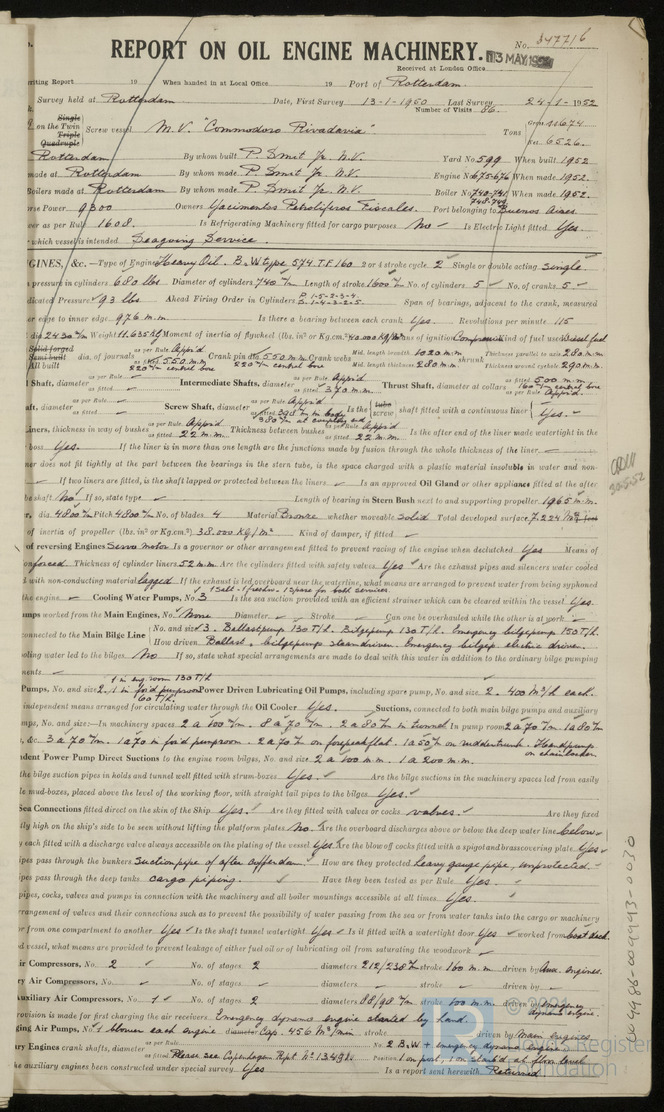 REPORT ON OIL ENGINE MACHINERY.
No. 847716
13 MAY 1952
Received at London Office
writing Report 19 When handed in at Local Office 19 Port of Rotterdam.
Survey held at Rotterdam Date, First Survey 13-1-1950 Last Survey 24-1-1952
Number of Visits 86.
Single
on the Twin Screw vessel M.V. "Commodoro Rivadavia" Tons
Triple
Quadruple
Gross 11674
Net 6526.
Rotterdam By whom built P. Smit Jr. N.V. Yard No. 599 When built 1952
made at Rotterdam By whom made P. Smit Jr. N.V. Engine No. 675-676 When made 1952.
Boilers made at Rotterdam By whom made P. Smit Jr. N.V. Boiler No. 740-741 When made 1952.
Horse Power 9300 Owners Yacimientos Petroliferos Fiscales. Port belonging to Buenos Aires.
Power as per Rule 1608. Is Refrigerating Machinery fitted for cargo purposes No Is Electric Light fitted Yes.
which vessel is intended Seagoing Service.
ENGINES, &c.—Type of Engine Heavy Oil. B.W type 574 T.F 160 2 or 4 stroke cycle 2 Single or double acting Single
pressure in cylinders 680 lbs Diameter of cylinders 740 m/m Length of stroke 1600 m/m No. of cylinders 5 No. of cranks 5
Indicated Pressure 93 lbs Ahead Firing Order in Cylinders P. 1-5-2-3-4. S. 1-4-3-2-5. Span of bearings, adjacent to the crank, measured
inner edge to inner edge. 976 m.m Is there a bearing between each crank Yes. Revolutions per minute 115
dia 2430 m/m Weight 11.635 kg Moment of inertia of flywheel (lbs. in² or Kg.cm.²) Means of ignition Compression Kind of fuel used Diesel fuel
Solid forged
Semi built dia. of journals as per Rule Appr'd as fitted 550 m.m Crank pin dia. 550 m.m Crank webs Mid. length breadth 1020 m.m Thickness parallel to axis 280 m.m.
All built 220 m/m central bore 220 m/m central bore Mid. length thickness 280 m.m. shrunk Thickness around eyehole 290 m.m.
Shaft, diameter as per Rule as fitted Intermediate Shafts, diameter as per Rule Appr'd as fitted 370 m.m. Thrust Shaft, diameter at collars as fitted 500 m.m 160 m/m central bore as per Rule Appr'd.
Shaft, diameter as per Rule as fitted Screw Shaft, diameter as per Rule Appr'd as fitted 395 m/m in body Is the tube screw shaft fitted with a continuous liner Yes.
Liners, thickness in way of bushes as per Rule Appr'd as fitted 22 m.m. Thickness between bushes as per Rule Appr'd as fitted 22 m.m. Is the after end of the liner made watertight in the
boss Yes. If the liner is in more than one length are the junctions made by fusion through the whole thickness of the liner.
liner does not fit tightly at the part between the bearings in the stern tube, is the space charged with a plastic material insoluble in water and non-
If two liners are fitted, is the shaft lapped or protected between the liners. Is an approved Oil Gland or other appliance fitted at the after
tube shaft. No If so, state type Length of bearing in Stern Bush next to and supporting propeller 1965 m.m.
dia. 4800 m/m Pitch 4800 m/m No. of blades 4 Material Bronze whether moveable Solid Total developed surface 7.224 M² feet
of inertia of propeller (lbs. in² or Kg.cm.²) 38.000 KG/M² Kind of damper, if fitted
of reversing Engines Servo motor Is a governor or other arrangement fitted to prevent racing of the engine when declutched Yes Means of
forced Thickness of cylinder liners 52 m.m. Are the cylinders fitted with safety valves Yes Are the exhaust pipes and silencers water cooled
with non-conducting material lagged If the exhaust is led overboard near the waterline, what means are arranged to prevent water from being syphoned
the engine Cooling Water Pumps, No. 3 1 Salt-1 freshw. 1 spare for both services. Is the sea suction provided with an efficient strainer which can be cleared within the vessel Yes.
Pumps worked from the Main Engines, No. None Diameter Stroke Can one be overhauled while the other is at work
connected to the Main Bilge Line No. and size 3. Ballastpump 130 T/h. Bilgepump 130 T/h. Emergency bilgepump 150 T/h.
How driven Ballast & bilgepumps steamdriven. Emergency bilgep. electric driven.
cooling water led to the bilges No If so, state what special arrangements are made to deal with this water in addition to the ordinary bilge pumping
arrangements
1 in eng. room 130 T/h
Pumps, No. and size 2. 1 in for'd pumproom 160 T/h. Power Driven Lubricating Oil Pumps, including spare pump, No. and size 2. 400 M³/h each.
independent means arranged for circulating water through the Oil Cooler Yes. Suctions, connected to both main bilge pumps and auxiliary
pumps, No. and size:—In machinery spaces 2 a 100 m/m. 8 a 70 m/m. 2 a 80 m/m in tunnel In pump room 2 a 70 m/m. 1 a 80 m/m
&c. 3 a 70 m/m. 1 a 70 in for'd pumproom. 2 a 70 m/m on forepeakflat. 1 a 50 m/m on ruddertrunk. Handpumps on chainlocker.
Independent Power Pump Direct Suctions to the engine room bilges, No. and size. 2 a 100 m.m. 1 a 200 m.m.
the bilge suction pipes in holds and tunnel well fitted with strum-boxes Yes. Are the bilge suctions in the machinery spaces led from easily
mud-boxes, placed above the level of the working floor, with straight tail pipes to the bilges Yes.
Sea Connections fitted direct on the skin of the Ship Yes. Are they fitted with valves or cocks valves. Are they fixed
sufficiently high on the ship's side to be seen without lifting the platform plates No. Are the overboard discharges above or below the deep water line below
they each fitted with a discharge valve always accessible on the plating of the vessel Yes. Are the blow off cocks fitted with a spigot and brass covering plate. Yes
pipes pass through the bunkers Suctionpipe of after cofferdam. How are they protected heavy gauge pipe, unprotected.
pipes pass through the deep tanks cargo piping. Have they been tested as per Rule Yes.
pipes, cocks, valves and pumps in connection with the machinery and all boiler mountings accessible at all times. Yes.
arrangement of valves and their connections such as to prevent the possibility of water passing from the sea or from water tanks into the cargo or machinery
or from one compartment to another Yes Is the shaft tunnel watertight Yes Is it fitted with a watertight door Yes worked from boat deck.
wood vessel, what means are provided to prevent leakage of either fuel oil or of lubricating oil from saturating the woodwork
Air Compressors, No. 2 No. of stages 2 diameters 212/238 m/m stroke 160 m.m. driven by Aux. engines.
Auxiliary Air Compressors, No. No. of stages diameters stroke driven by
Auxiliary Air Compressors, No. 1 No. of stages 2 diameters 88/98 m/m stroke 100 m.m driven by Emergency dynamo engine.
provision is made for first charging the air receivers Emergency dynamo engine started by hand.
Scavenging Air Pumps, No. 1 blower each engine diameter Cap. 456 M³/min stroke driven by Main engines
Auxiliary Engines crank shafts, diameter as per Rule as fitted Please see Copenhagen Rpt. No. 13498. No. 2 B.W + emergency dynamo engine
Position 1 on port, 1 on starb'd at floor level
the auxiliary engines been constructed under special survey Yes Is a report sent herewith Returned.
© 2021
Lloyd's Register Foundation
30-5-52
004986-004993-0030